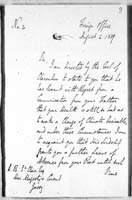 No. 2.
Foreign Office
August 2. 1879
Sir,
I am directed by the Earl of
to state to you that he
has learnt with regret from a
communication from your Father
that your health is still so bad as
to make a change of Climate desirable,
and under these circumstances I am
to acquaint you that His Lordship
grants you a further leave of
Absence from your Post until next
Her Majesty's Consul